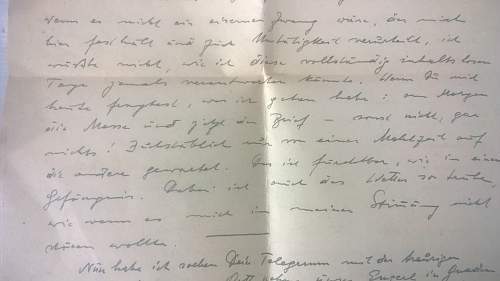 wenn es nicht ein eiserner Zwang wäre, der mich
hier festhält und zur Untätigkeit verurteilt, ich
wüßte nicht, wie ich diese vollständig inhaltslosen
Tage jemals verantworten könnte. Wenn Du mich
heute fragtest, was ich getan habe: am Morgen
die Messe und jetzt den Brief – sonst nicht, gar
nichts! Buchstäblich nur von einer Mahlzeit auf
die andere gewartet. Das ist furchtbar, wie in einem
Gefängnis. Dabei ist auch das Wetter so trübe
wie wenn es mich in meiner Stimmung nicht
stören wollte.
Nun habe ich soeben Dein Telegramm mit der traurigen
Gott unser Engerl in Gnaden